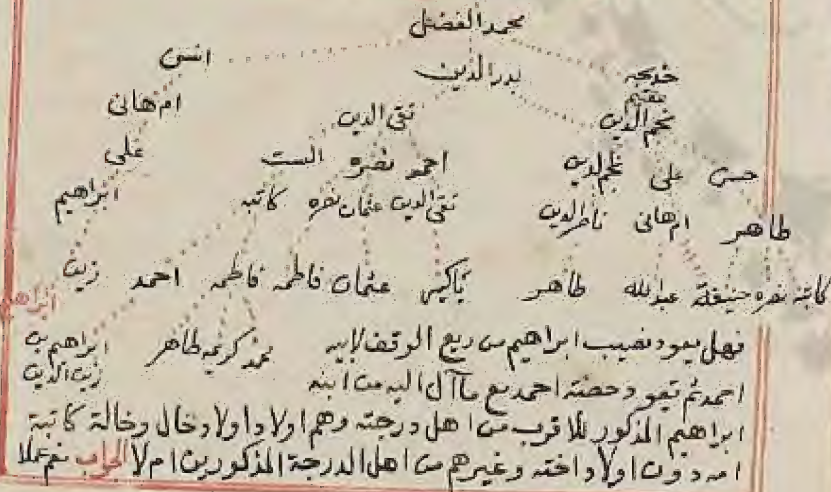 محمد الفضل
انسى بدر الدين خديجه
عقيم
ام هانى تقى الدين نجم الدين
على الست نصره احمد نجم الدين على حسن
ابراهيم كاتبه نصره عثمان تقى الدين ناصر الدين ام هانى طاهر
زين احمد فاطمه فاطمه عثمان طاهر عبد الله حنيفة نصره كاتبة
ابراهيم
ابراهيم بن زين الدين طاهر كريمه محمد
فهل يعود نصيب ابراهيم من ريع الوقف لابيه
احمد ثم تعود حصته احمد مع ما آل اليه من ابنه
ابراهيم المذكور للاقرب من اهل درجته وهم اولاد اولاد خال وخالة كاتبة
امه دون اولاد اخته وغيرهم من اهل الدرجة المذكورين ام لا الجواب نعم عملا